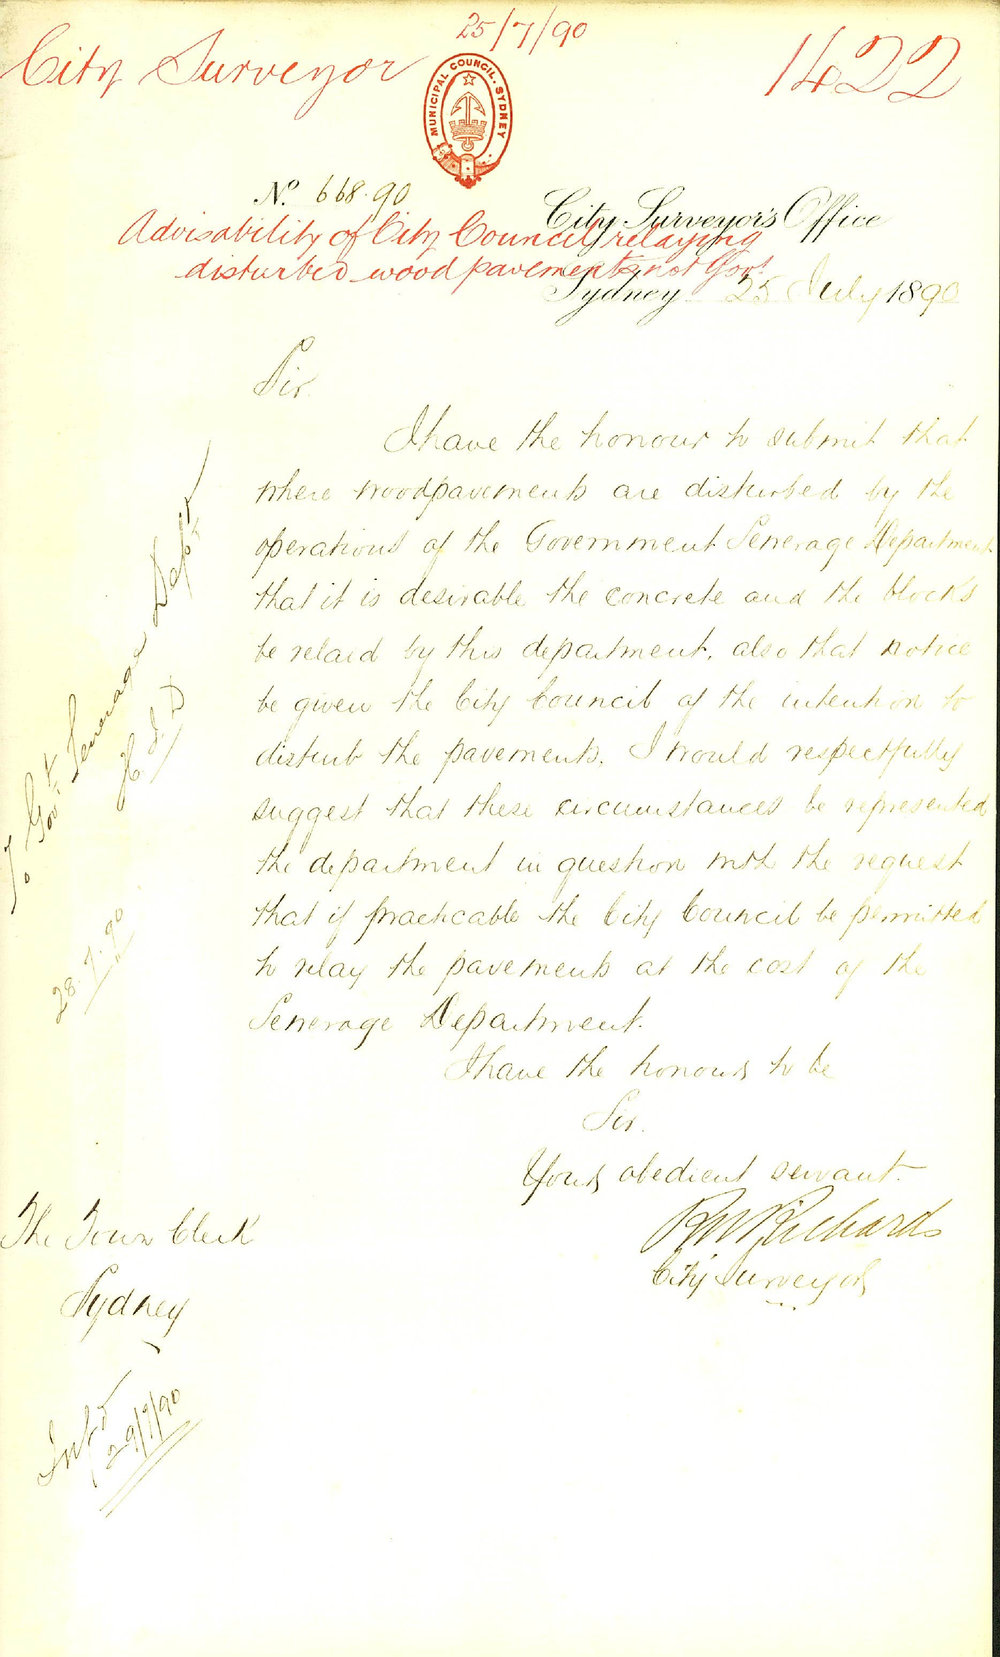 25/7/90
City Surveyor
1422
MUNICIPAL COUNCIL. SYDNEY
No. 668.90
City Surveyor's Office
Advisability of City Council relaying
disturbed wood pavements not Govt
Sydney 25 July 1890
Sir.
I have the honour to submit that
where woodpavements are disturbed by the
operations of the Government Sewerage Department
that it is desirable the concrete and the blocks
be relaid by this department, also that notice
be given the City Council of the intention to
disturb the pavements. I would respectfully
suggest that these circumstances be represented
the department in question with the request
that if practicable the City Council be permitted
to relay the pavements at the cost of the
Sewerage Department.
I have the honour to be
Sir.
Your obedient servant.
RW Richards
City Surveyor
The Town Clerk
Sydney
To Govt. Sewerage Dept
28.7.90
29/7/90